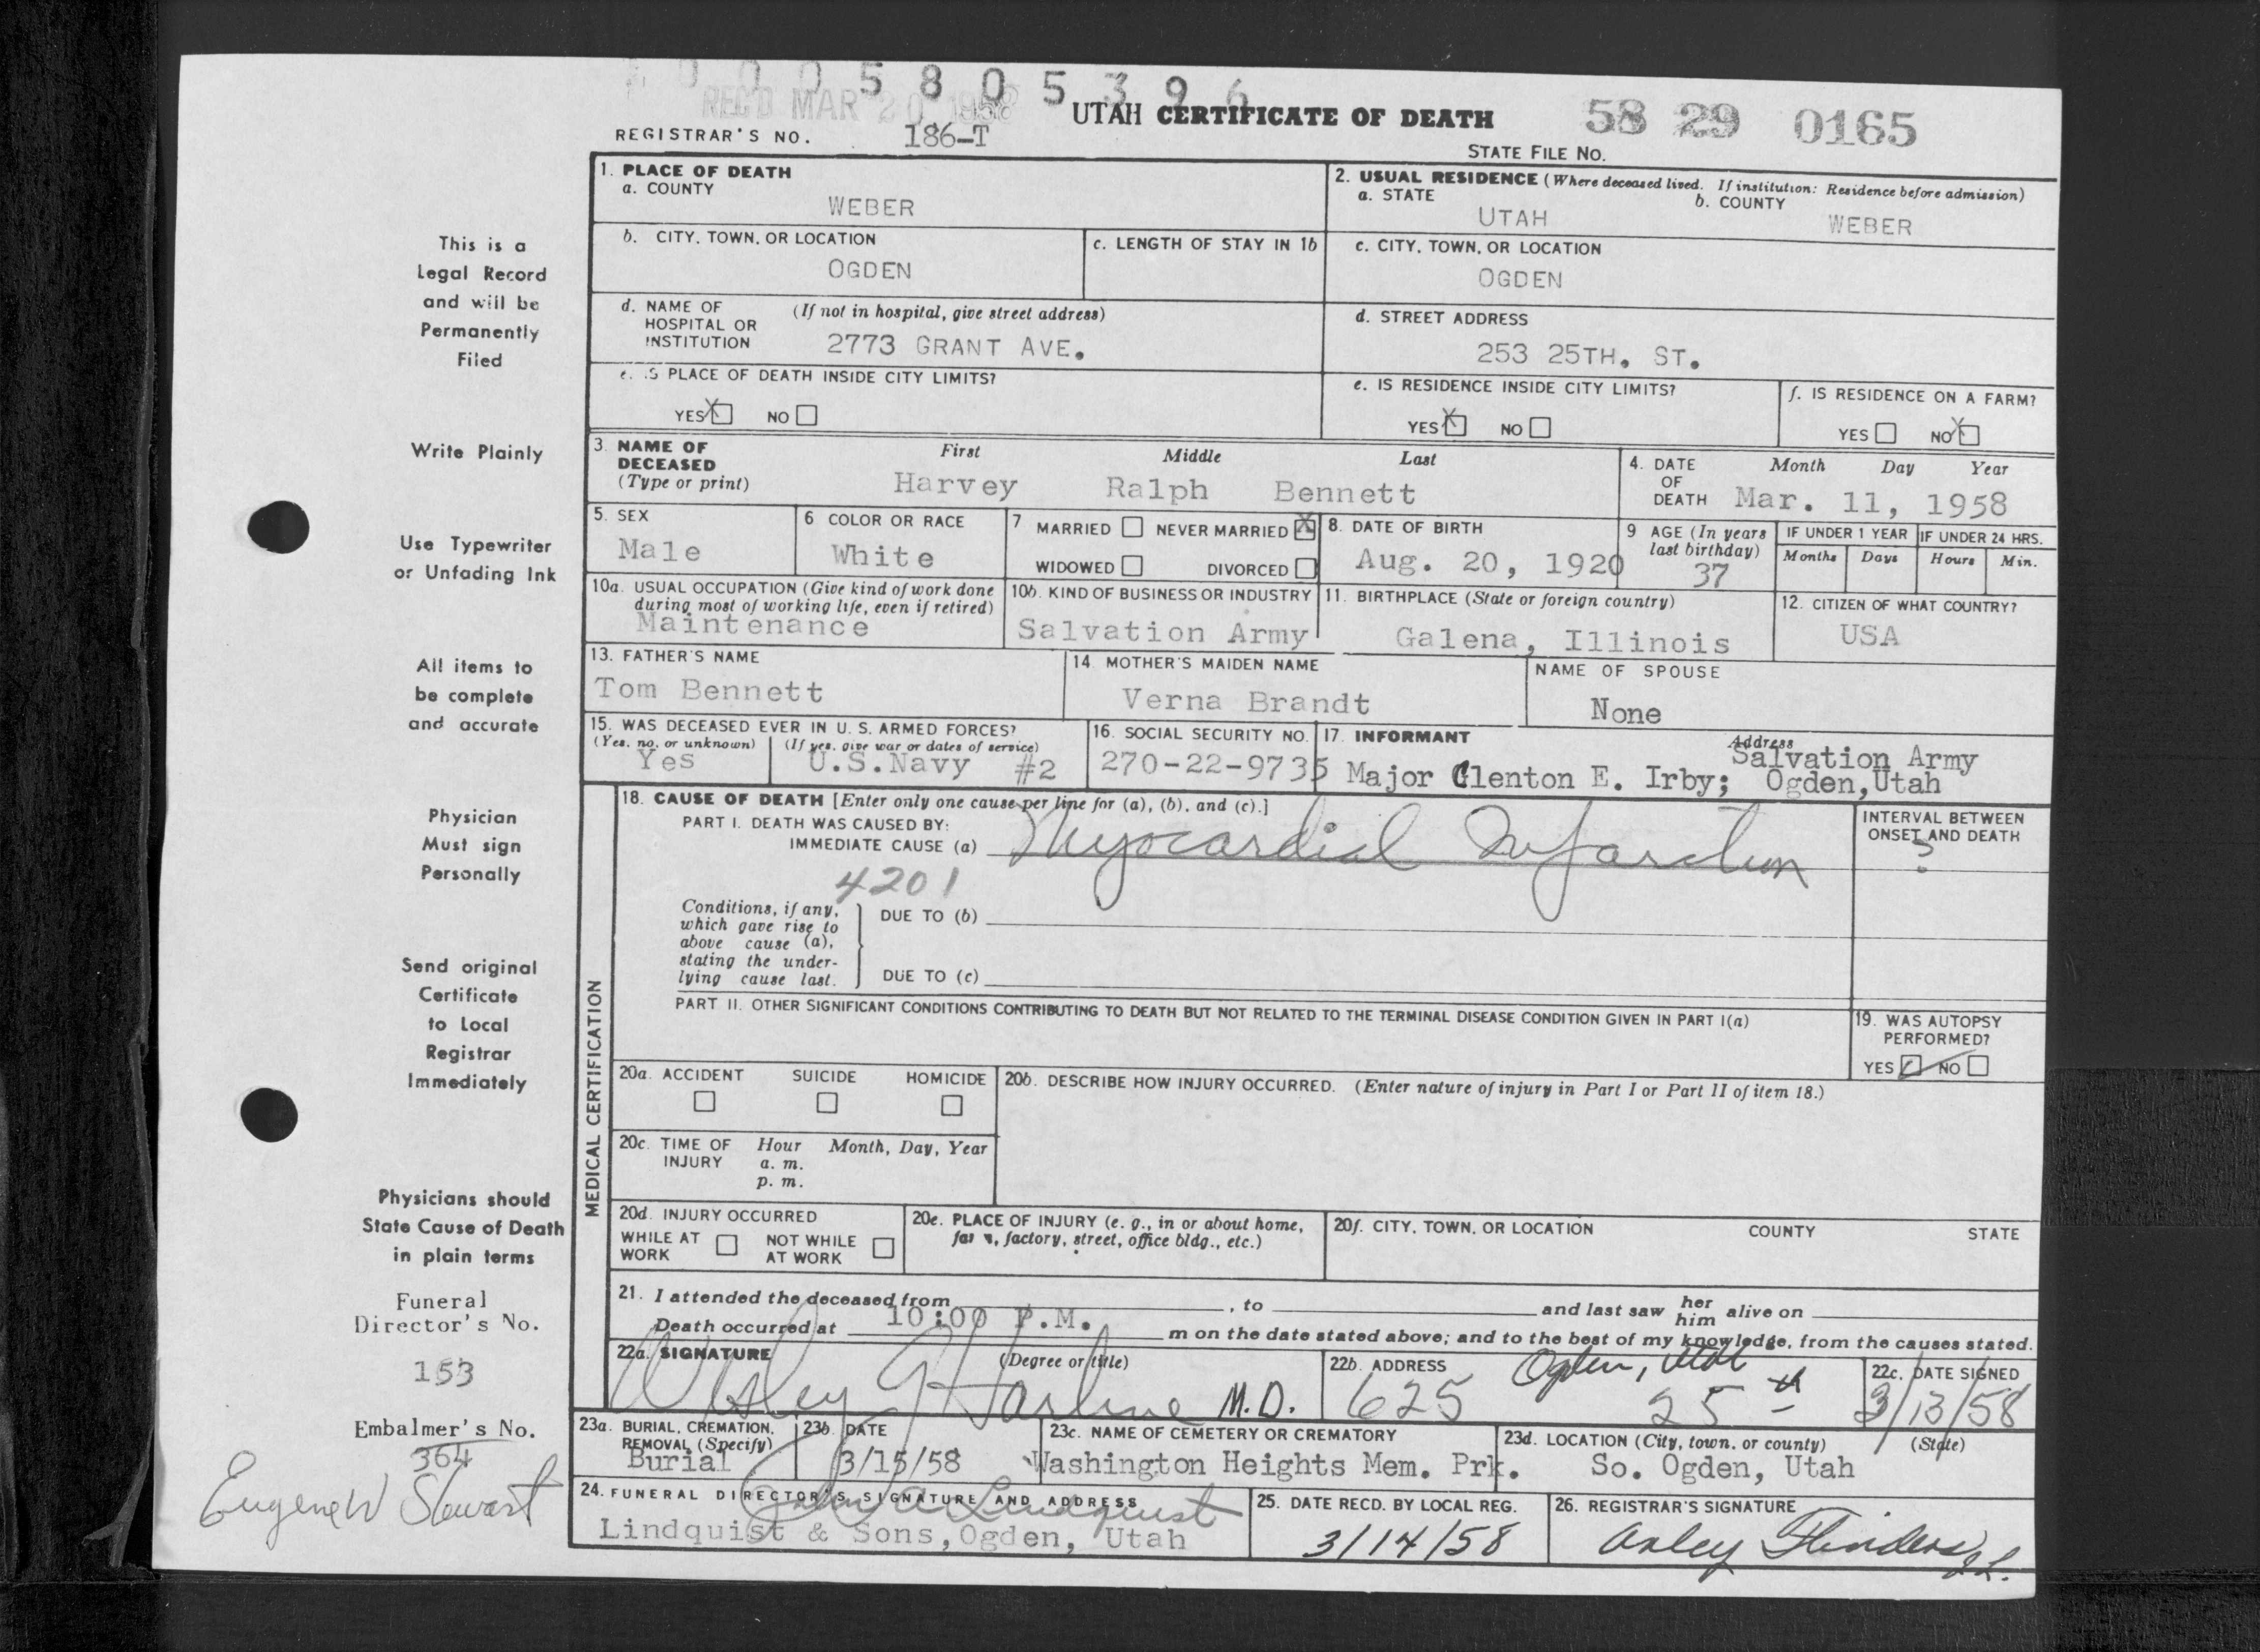 1 0 0 0 5 8 0 5 3 9 6
REC'D MAR 20 1958
UTAH CERTIFICATE OF DEATH
58 29 0165
REGISTRAR'S NO. 186-T
STATE FILE NO.
This is a
Legal Record
and will be
Permanently
Filed
Write Plainly
Use Typewriter
or Unfading Ink
All items to
be complete
and accurate
Physician
Must sign
Personally
Send original
Certificate
to Local
Registrar
Immediately
Physicians should
State Cause of Death
in plain terms
Funeral
Director's No.
153
Embalmer's No.
364
Eugene W Stewart
1. PLACE OF DEATH
a. COUNTY
WEBER
2. USUAL RESIDENCE (Where deceased lived. If institution: Residence before admission)
a. STATE b. COUNTY
UTAH WEBER
b. CITY, TOWN, OR LOCATION
OGDEN
c. LENGTH OF STAY IN 1b
c. CITY, TOWN, OR LOCATION
OGDEN
d. NAME OF (If not in hospital, give street address)
HOSPITAL OR
INSTITUTION 2773 GRANT AVE.
d. STREET ADDRESS
253 25TH. ST.
e. IS PLACE OF DEATH INSIDE CITY LIMITS?
YES X NO
e. IS RESIDENCE INSIDE CITY LIMITS?
YES X NO
f. IS RESIDENCE ON A FARM?
YES NO X
3. NAME OF First Middle Last
DECEASED
(Type or print) Harvey Ralph Bennett
4. DATE Month Day Year
OF
DEATH Mar. 11, 1958
5. SEX
Male
6 COLOR OR RACE
White
7 MARRIED NEVER MARRIED X
WIDOWED DIVORCED
8. DATE OF BIRTH
Aug. 20, 1920
9 AGE (In years
last birthday)
37
IF UNDER 1 YEAR
Months Days
IF UNDER 24 HRS.
Hours Min.
10a. USUAL OCCUPATION (Give kind of work done
during most of working life, even if retired)
Maintenance
10b. KIND OF BUSINESS OR INDUSTRY
Salvation Army
11. BIRTHPLACE (State or foreign country)
Galena, Illinois
12. CITIZEN OF WHAT COUNTRY?
USA
13. FATHER'S NAME
Tom Bennett
14. MOTHER'S MAIDEN NAME
Verna Brandt
NAME OF SPOUSE
None
15. WAS DECEASED EVER IN U. S. ARMED FORCES?
(Yes, no, or unknown) (If yes, give war or dates of service)
Yes U.S.Navy #2
16. SOCIAL SECURITY NO.
270-22-9735
17. INFORMANT Address
Salvation Army
Major Clenton E. Irby; Ogden,Utah
MEDICAL CERTIFICATION
18. CAUSE OF DEATH [Enter only one cause per line for (a), (b), and (c).]
PART I. DEATH WAS CAUSED BY:
IMMEDIATE CAUSE (a) Myocardial Infarction
4201
INTERVAL BETWEEN
ONSET AND DEATH
?
Conditions, if any,
which gave rise to
above cause (a),
stating the under-
lying cause last.
DUE TO (b)
DUE TO (c)
PART II. OTHER SIGNIFICANT CONDITIONS CONTRIBUTING TO DEATH BUT NOT RELATED TO THE TERMINAL DISEASE CONDITION GIVEN IN PART I(a)
19. WAS AUTOPSY
PERFORMED?
YES NO
20a. ACCIDENT SUICIDE HOMICIDE
20b. DESCRIBE HOW INJURY OCCURRED. (Enter nature of injury in Part I or Part II of item 18.)
20c. TIME OF Hour Month, Day, Year
INJURY a. m.
p. m.
20d. INJURY OCCURRED
WHILE AT NOT WHILE
WORK AT WORK
20e. PLACE OF INJURY (e. g., in or about home,
farm, factory, street, office bldg., etc.)
20f. CITY, TOWN, OR LOCATION COUNTY STATE
21. I attended the deceased from , to and last saw her him alive on
Death occurred at 10:00 P.M. m on the date stated above; and to the best of my knowledge, from the causes stated.
22a. SIGNATURE (Degree or title)
Wesley G Harline M.D.
22b. ADDRESS Ogden, Utah
625 25 th
22c. DATE SIGNED
3/13/58
23a. BURIAL, CREMATION,
REMOVAL (Specify)
Burial
23b. DATE
3/15/58
23c. NAME OF CEMETERY OR CREMATORY
Washington Heights Mem. Prk.
23d. LOCATION (City, town, or county) (State)
So. Ogden, Utah
24. FUNERAL DIRECTOR'S SIGNATURE AND ADDRESS
John A Lindquist
Lindquist & Sons,Ogden, Utah
25. DATE RECD. BY LOCAL REG.
3/14/58
26. REGISTRAR'S SIGNATURE
Axley Flinders